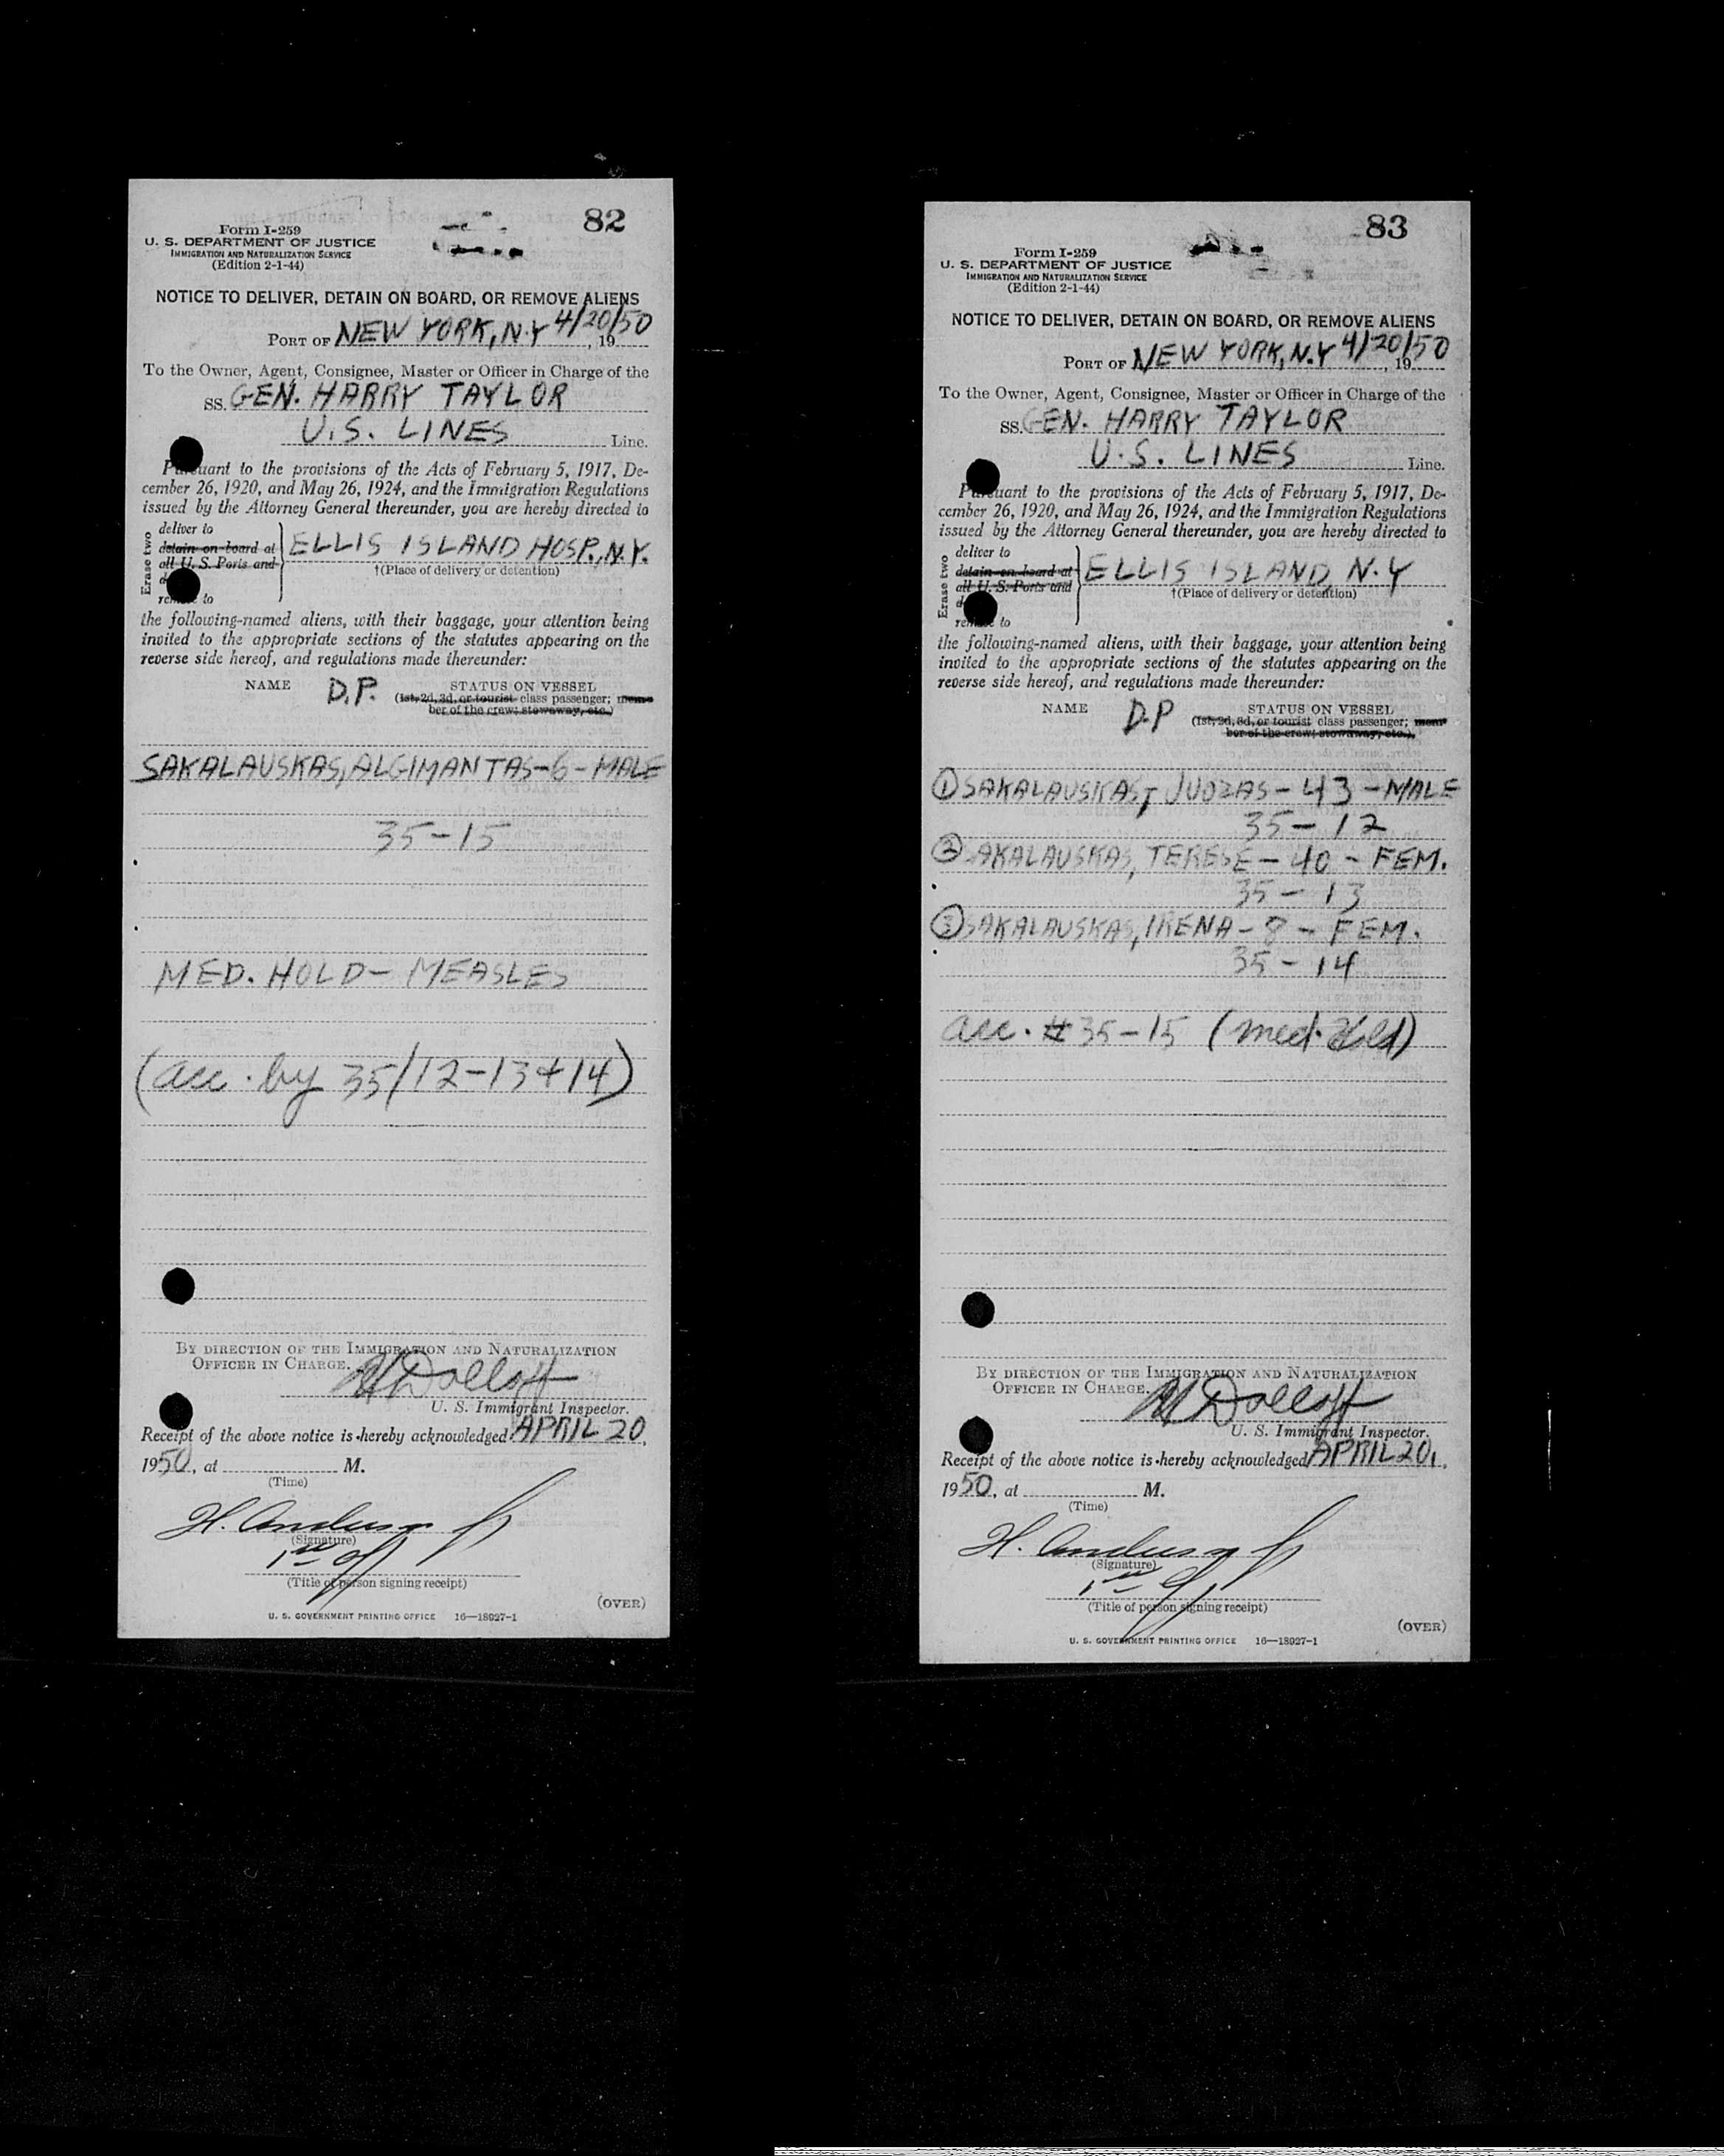 82
Form I-259
U. S. DEPARTMENT OF JUSTICE
IMMIGRATION AND NATURALIZATION SERVICE
(Edition 2-1-44)
NOTICE TO DELIVER, DETAIN ON BOARD, OR REMOVE ALIENS
PORT OF NEW YORK, N.Y 4/20/50, 19
To the Owner, Agent, Consignee, Master or Officer in Charge of the
SS. GEN. HARRY TAYLOR
U.S. LINES Line.
Pursuant to the provisions of the Acts of February 5, 1917, De-
cember 26, 1920, and May 26, 1924, and the Immigration Regulations
issued by the Attorney General thereunder, you are hereby directed to
Erase two
deliver to
detain on board at
all U. S. Ports and
remove to
ELLIS ISLAND HOSP., N.Y.
†(Place of delivery or detention)
the following-named aliens, with their baggage, your attention being
invited to the appropriate sections of the statutes appearing on the
reverse side hereof, and regulations made thereunder:
NAME D.P. STATUS ON VESSEL
(1st, 2d, 3d, or tourist class passenger; mem-
ber of the crew; stowaway, etc.)
SAKALAUSKAS, ALGIMANTAS-6-MALE
35-15
MED. HOLD- MEASLES
(acc. by 35/12-13+14)
BY DIRECTION OF THE IMMIGRATION AND NATURALIZATION
OFFICER IN CHARGE.
Dolloff
U. S. Immigrant Inspector.
Receipt of the above notice is hereby acknowledged APRIL 20,
1950, at M.
(Time)
H.
(Signature)
(Title of person signing receipt)
(OVER)
U. S. GOVERNMENT PRINTING OFFICE 16—18027-1
83
Form I-259
U. S. DEPARTMENT OF JUSTICE
IMMIGRATION AND NATURALIZATION SERVICE
(Edition 2-1-44)
NOTICE TO DELIVER, DETAIN ON BOARD, OR REMOVE ALIENS
PORT OF NEW YORK, N.Y 4/20/50, 19
To the Owner, Agent, Consignee, Master or Officer in Charge of the
SS. GEN. HARRY TAYLOR
U.S. LINES Line.
Pursuant to the provisions of the Acts of February 5, 1917, De-
cember 26, 1920, and May 26, 1924, and the Immigration Regulations
issued by the Attorney General thereunder, you are hereby directed to
Erase two
deliver to
detain on board at
all U. S. Ports and
remove to
ELLIS ISLAND, N.Y
†(Place of delivery or detention)
the following-named aliens, with their baggage, your attention being
invited to the appropriate sections of the statutes appearing on the
reverse side hereof, and regulations made thereunder:
NAME D.P STATUS ON VESSEL
(1st, 2d, 3d, or tourist class passenger; mem-
ber of the crew; stowaway, etc.)
① SAKALAUSKAS, JUOZAS-43-MALE
35-12
② SAKALAUSKAS, TERESE-40-FEM.
35-13
③ SAKALAUSKAS, IRENA-8-FEM.
35-14
acc. #35-15 (med. Hold)
BY DIRECTION OF THE IMMIGRATION AND NATURALIZATION
OFFICER IN CHARGE.
Dolloff
U. S. Immigrant Inspector.
Receipt of the above notice is hereby acknowledged APRIL 20,
1950, at M.
(Time)
H.
(Signature)
(Title of person signing receipt)
(OVER)
U. S. GOVERNMENT PRINTING OFFICE 16—18027-1